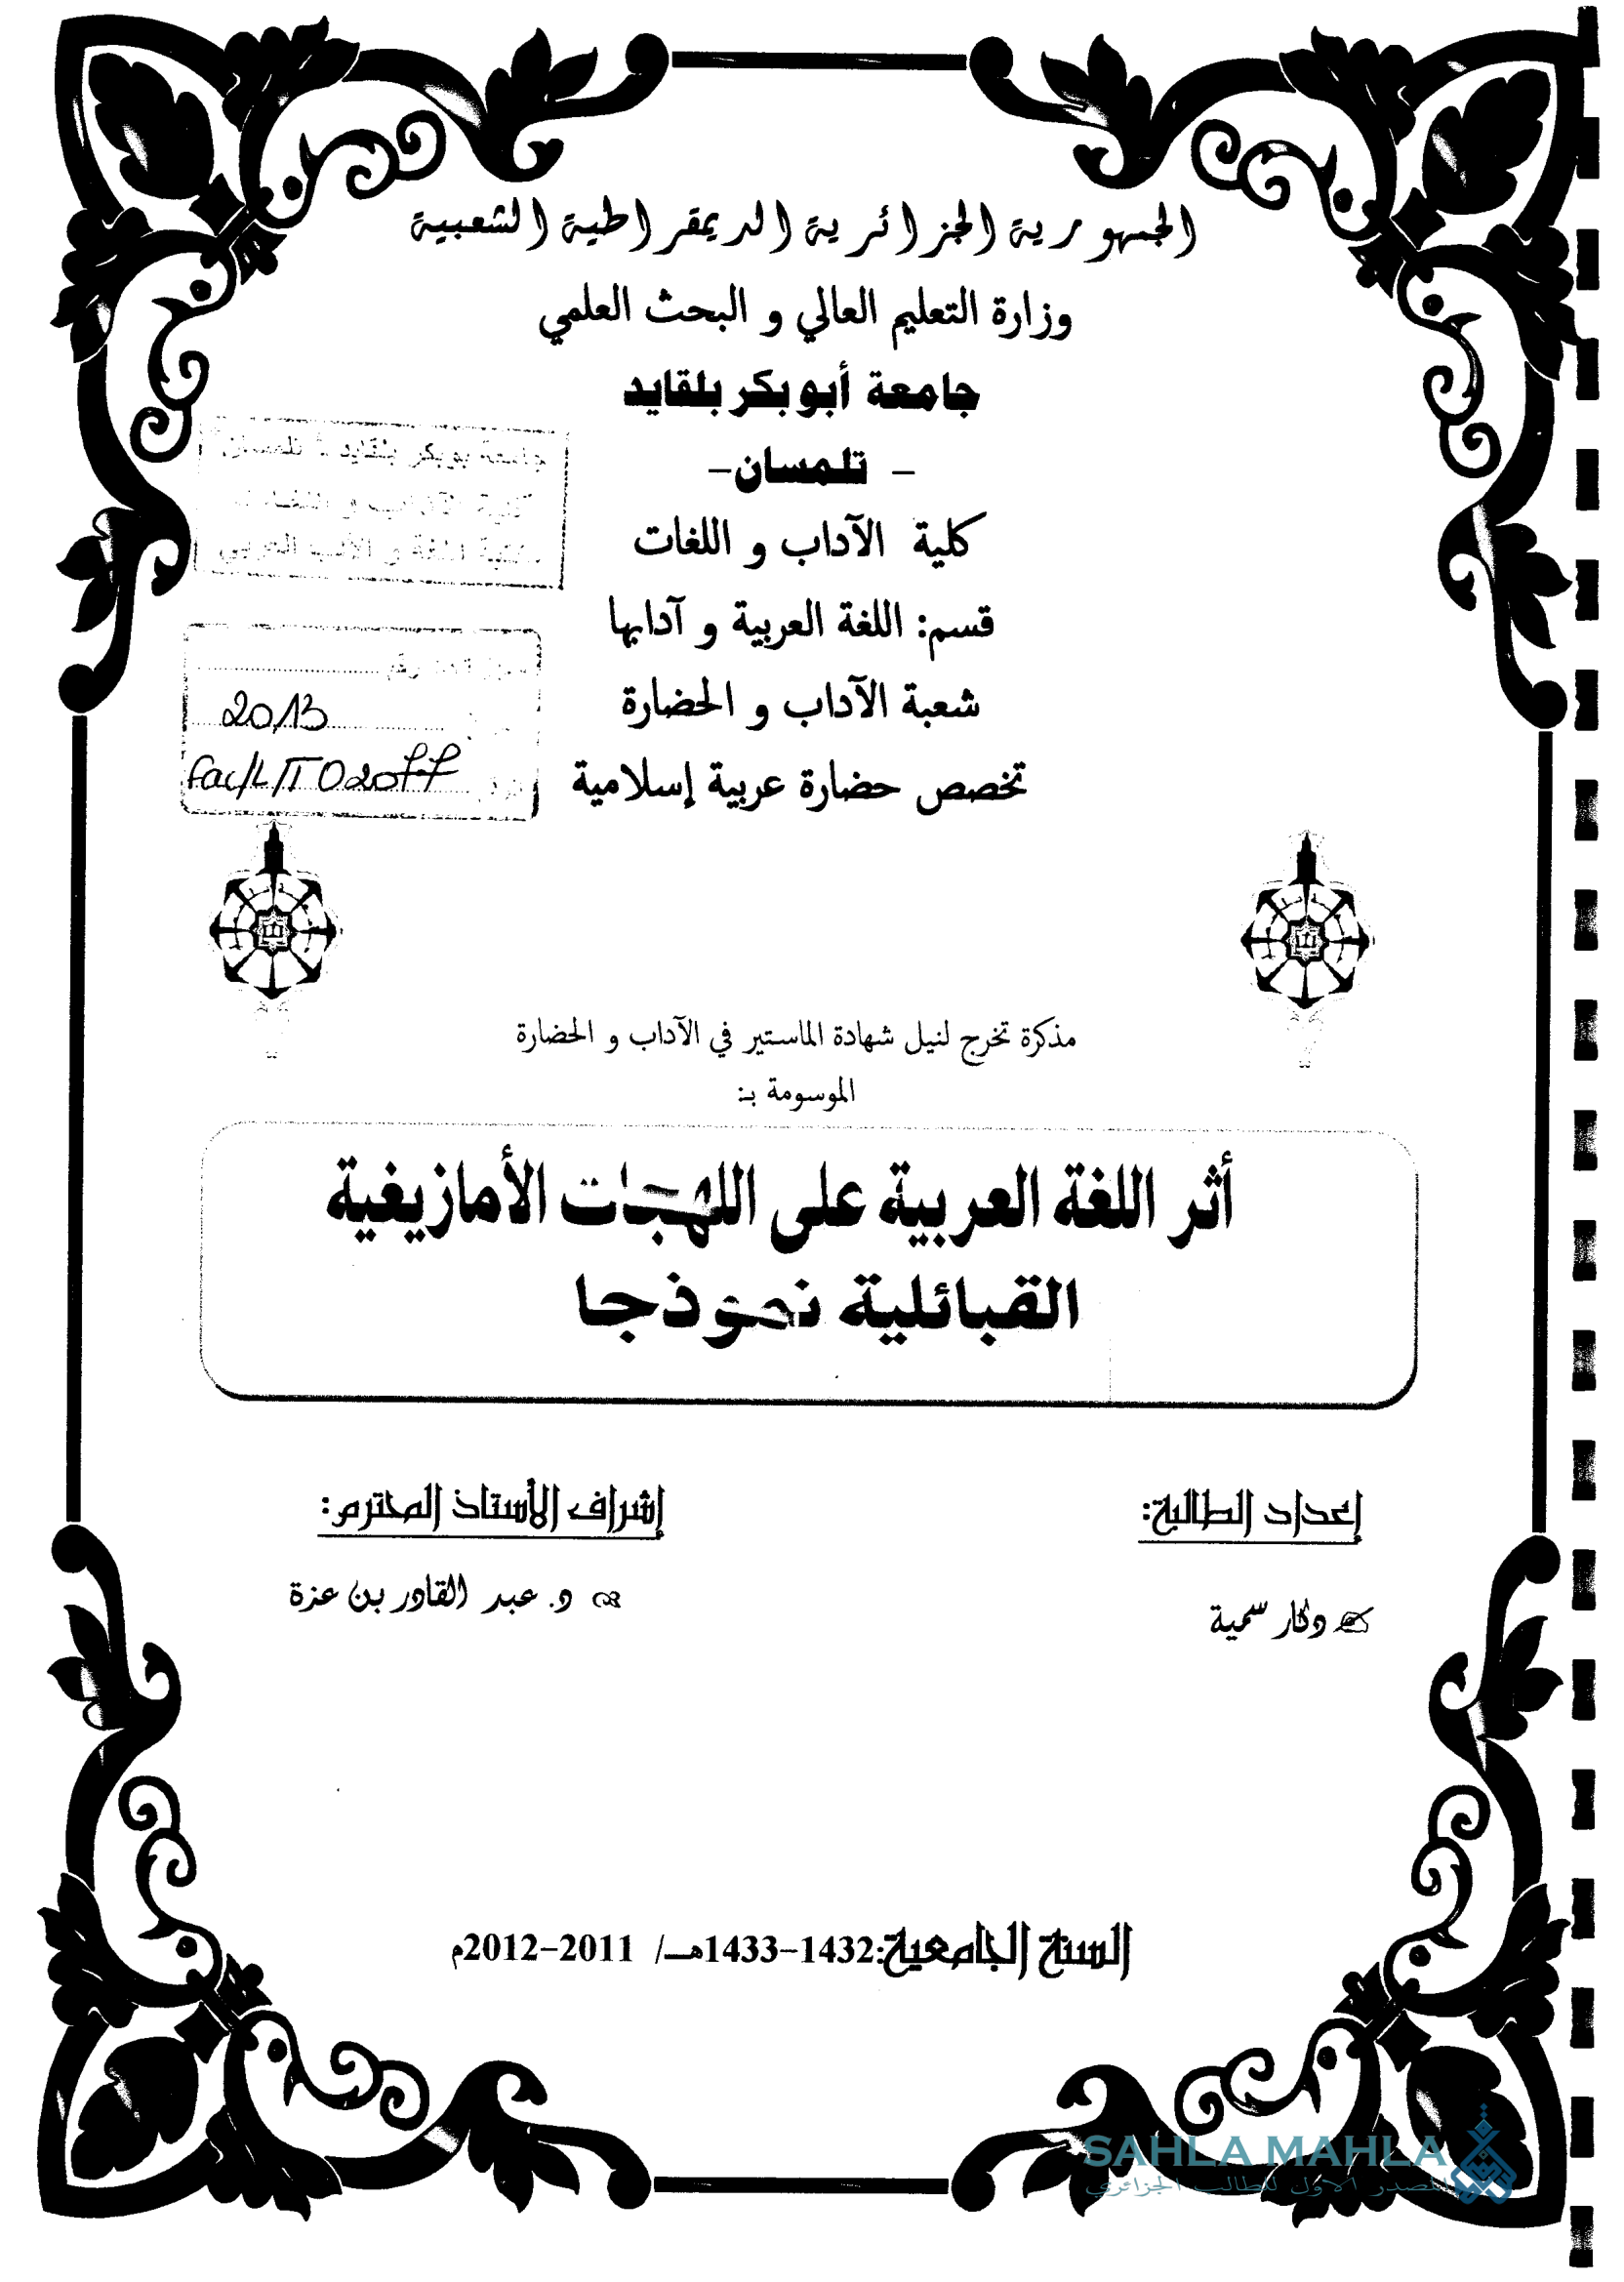 الجمهورية الجزائرية الديمقراطية الشعبية
وزارة التعليم العالي و البحث العلمي
جامعة أبو بكر بلقايد
- تلمسان-
جامعة بوبكر بلقايد - تلمسان
كلية الآداب و اللغات
مكتبة اللغة و الأدب العربي
كلية الآداب و اللغات
قسم: اللغة العربية و آدابها
شعبة الآداب و الحضارة
تخصص حضارة عربية إسلامية
2013
Fac/L/T02077
مذكرة تخرج لنيل شهادة الماستير في الآداب و الحضارة
الموسومة بـ:
أثر اللغة العربية على اللهجات الأمازيغية
القبائلية نموذجا
إعداد الطالبة:
إشراف الأستاذ المحترم:
دكار سمية
د. عبد القادر بن عزة
السنة الجامعية:1432-1433هـ/ 2011-2012م
SAHLA MAHLA
المصدر الاول للطالب الجزائري